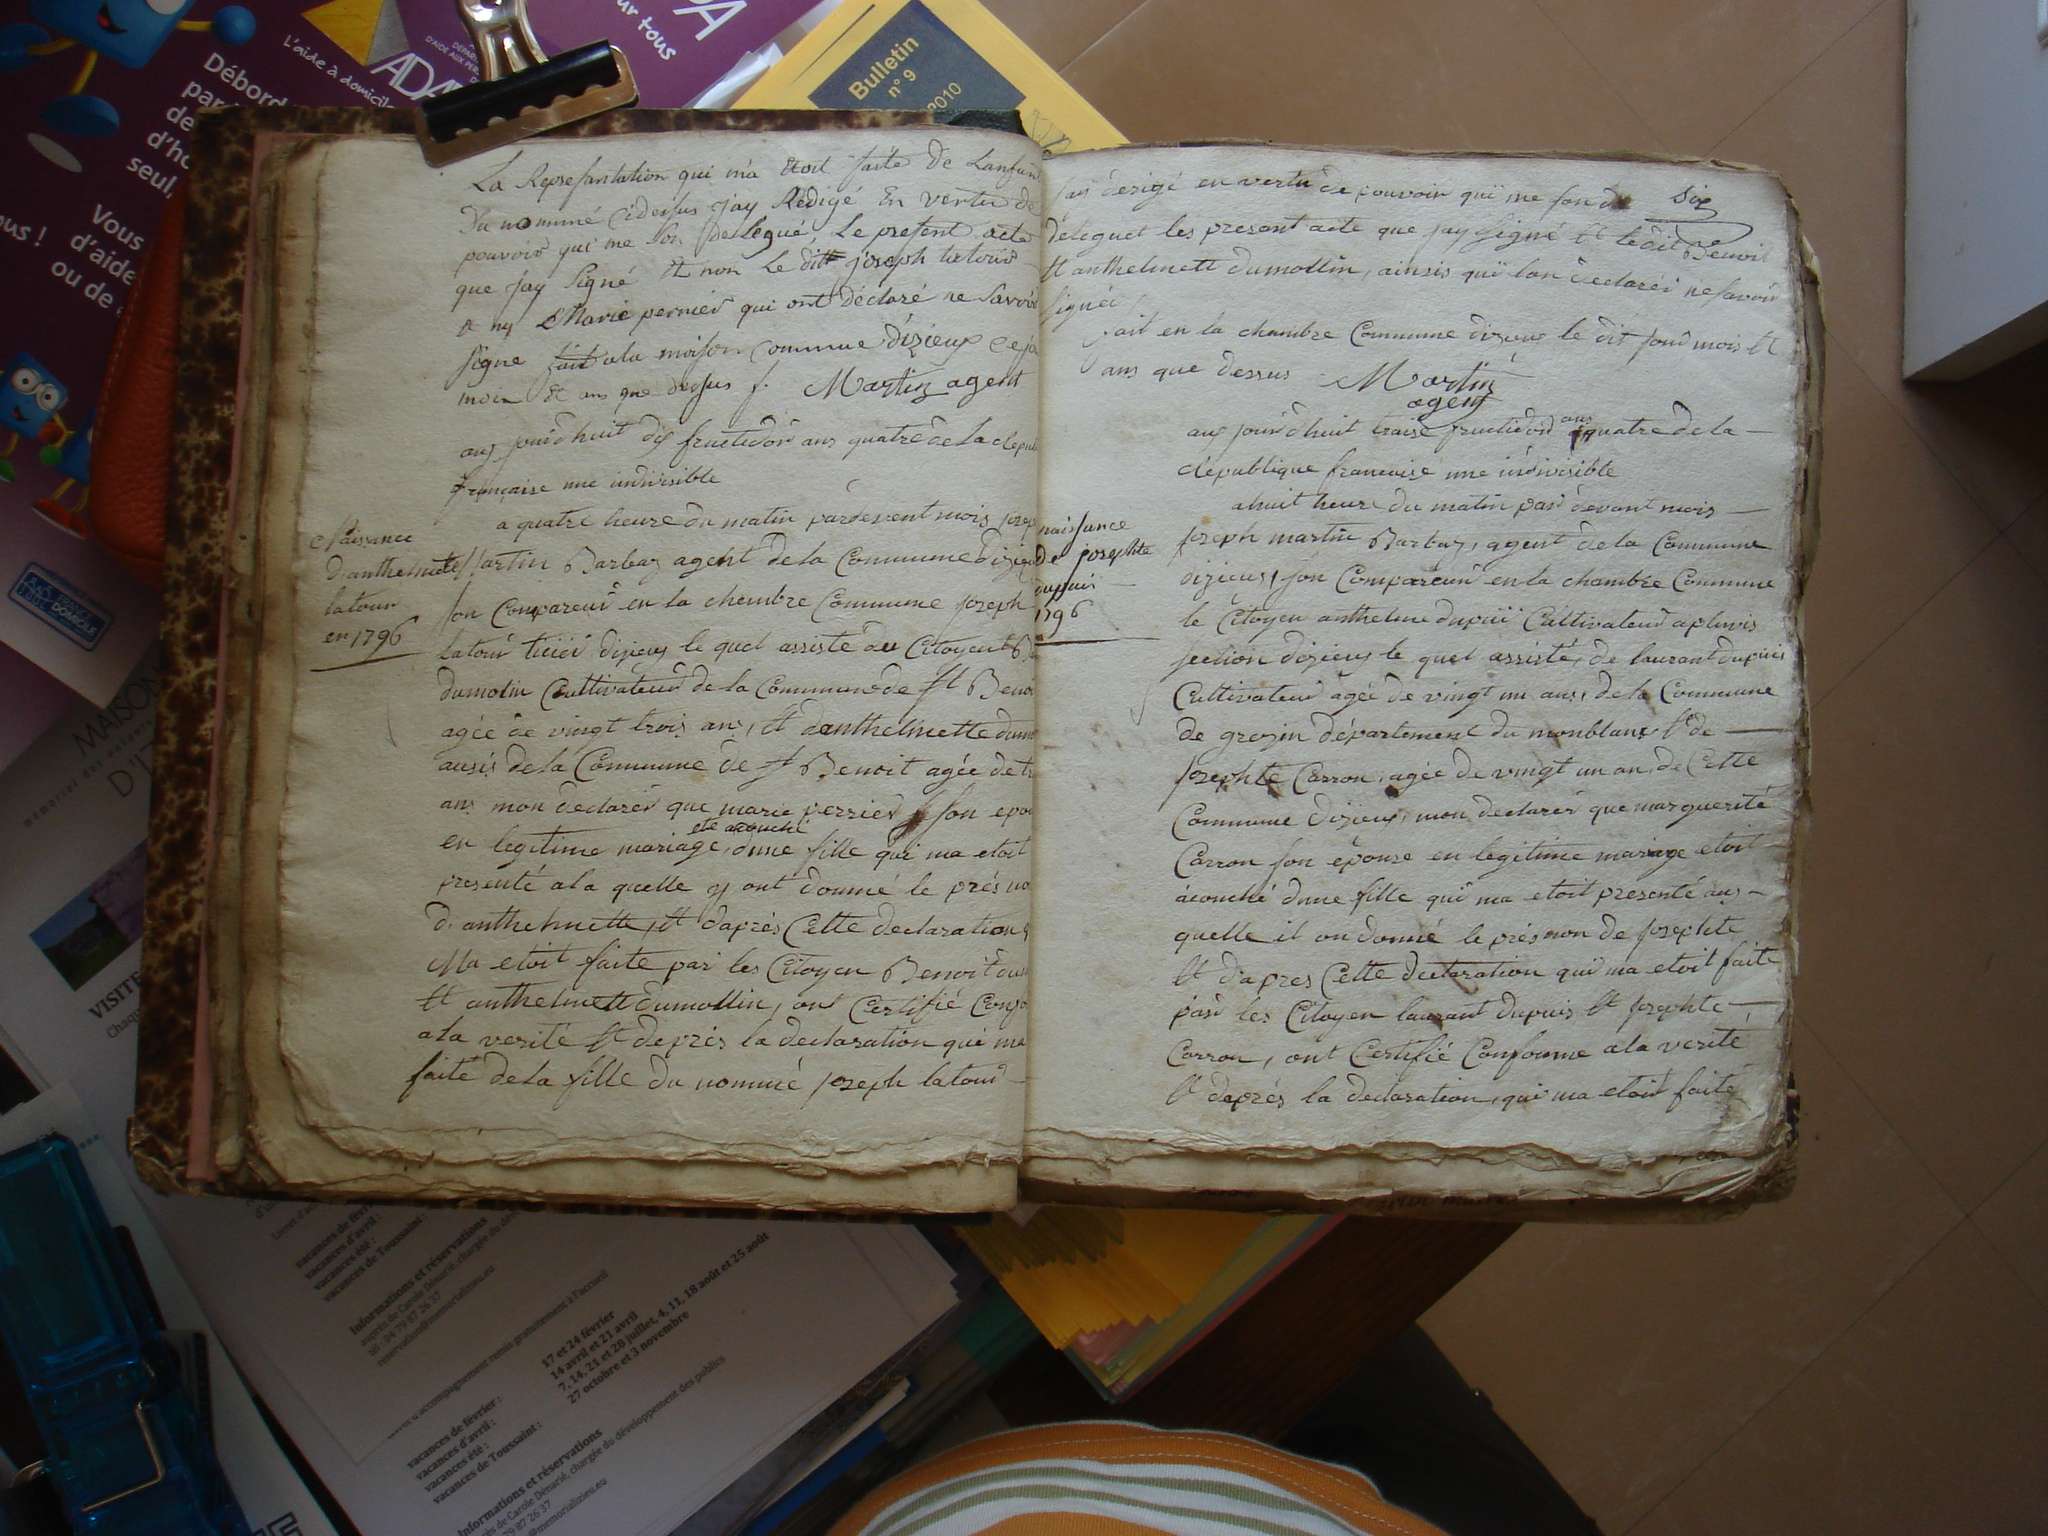 La Represantation qui m'a Etoit faite De Lanfan
Du nommé Cidessus jay Redigé En vertu de
pouvoir qui me son dellegué Le present acte
que jay Signé Et non Le ditt joseph latour
A ny Marie pernier qui ont déclaré ne Savoir
Signe fait ala maison Commune Dizieux Ce jo
mois et ans que dessus f. Martin agent
aux jourdhuit dix fructidor ans quatre de La Repu
française une indivisible
a quatre heure du matin pardevent mois josep
Naissance
D'anthelmette
latour
en 1796
Martin Barbaz agent de la Commune Dizieu
son Compareur en la chembre Commune joseph
latour dizieux le quel assisté du Citoyent B
dumolin Cultivateur de la Commune de St Benoi
agée de vingt trois ans, Et danthelmette dumo
ausis de la Commune de St Benoit agée de tr
ans mon declarer que marie perrier son epou
ete acouché
en legitime mariage, dune fille qui ma etoit
presenté ala quelle y ont donné le prés no
d. anthelmette, Et daprés Cette declaration q
Ma etoit faite par les Citoyen Benoit dum
Et anthelmett dumollin, ont Certifié Confo
ala verité Et deprés la declaration qui ma
faite de la fille du nommé joseph latour
jai derigé en vertu de pouvoir qui me son d Six
déleguet les present acte que jay Signé Et ledit Benoit
Et anthelmett dumollin, ainsis qui lon declarér ne savoir
Signér
fait en la chambre Commune dizieux le dit jour mois Et
ans que dessus Martin
agent
aux jour dhuit traise fructidor ans quatre de la
République francaise une indivisible
ahuit heure du matin par devant mois
naissance
de josephte
dupuis
1796
joseph martin Barbaz, agent de la Commune
dizieux, son Compareur en la chambre Commune
le Citoyen anthelme dupui Cultivateur
section dizieux le quel assisté, de laurant dupuis
Cultivateur agée de vingt un ans, de la Commune
de grezin département du monblanx Et de
josephte Carron, agée de vingt un an, de Cette
Commune Dizieux, mon declarer que marguerite
Carron son épouse en legitime mariage etoit
acouché dune fille qui ma etoit presenté aux
quelle il on donné le présnon de josephte
Et dapres Cette declaration qui ma etoit faite
par les Citoyen laurant dupuis Et josephte
Carron, ont Certifié Conforme ala verité
Et deprés la declaration, qui ma etoit faite
Bulletin
n° 9
2010
L'aide à domicile
ur tous
ADA
Débord
par
de
d'ho
seul,
Vous
d'aide
ou de
ous !
DOMICILE
MAISON
D'I
VISITE
Chaqu
vacances d'avril :
vacances été :
vacances de Toussaint :
Informations et réservations
auprès de Carole Dénarié, chargée du dé
accompagnement remis gratuitement à l'accueil
vacances de février : 17 et 24 février
vacances d'avril : 14 avril et 21 avril
vacances été : 7, 14, 21 et 28 juillet, 4, 11, 18 août et 25 août
vacances de Toussaint : 27 octobre et 3 novembre
Informations et réservations
de Carole Dénarié, chargée du développement des publics
79 87 26 37
@memorializieu.eu